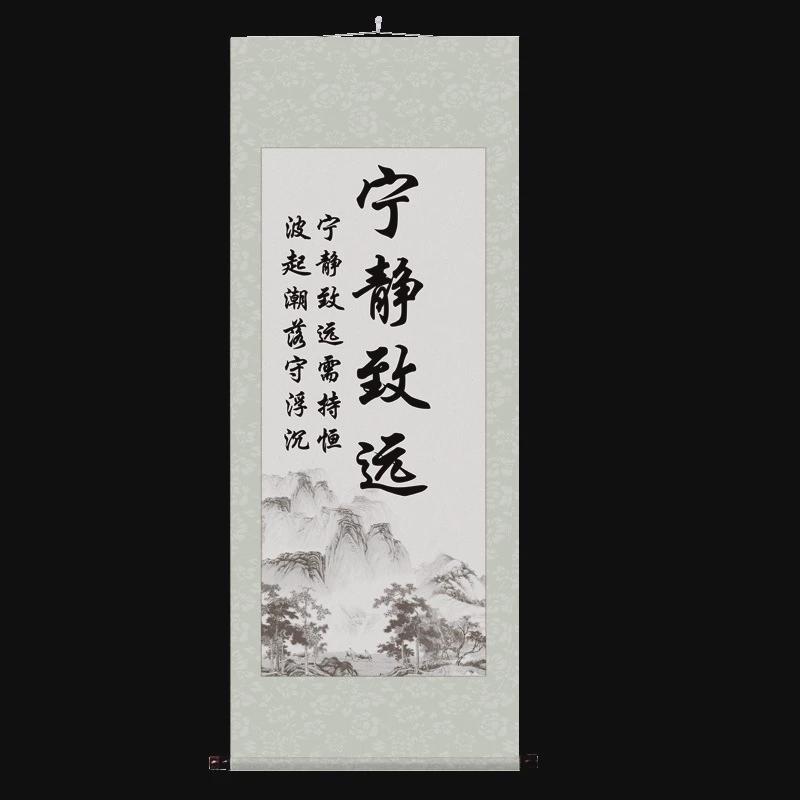 宁静致远
宁静致远需持恒
波起潮落守浮沉